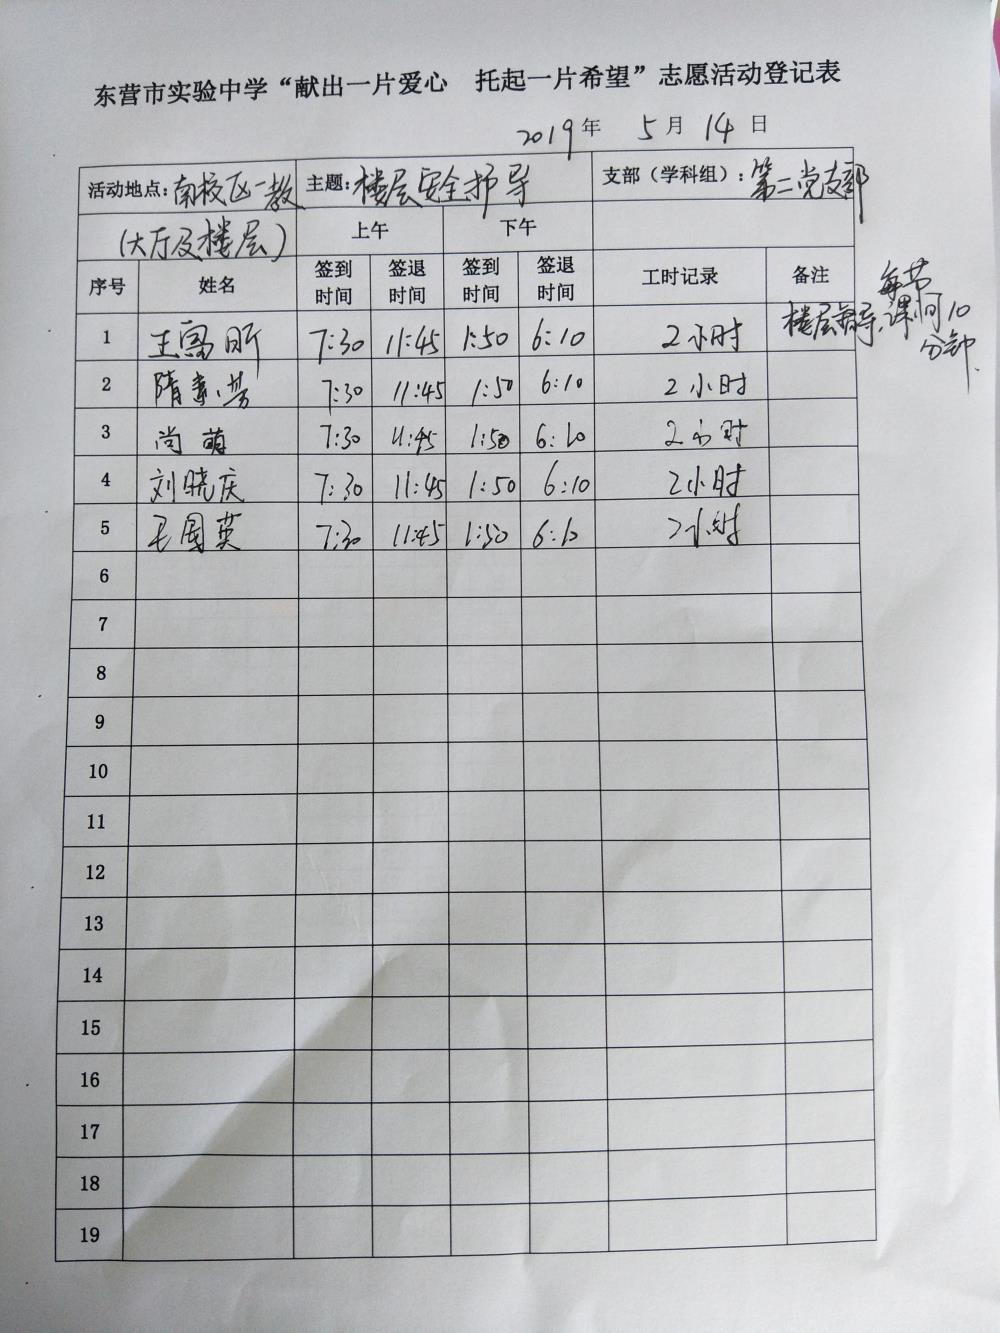 东营市实验中学“献出一片爱心 托起一片希望”志愿活动登记表
2019年 5月14日
活动地点:南校区一教 主题:楼层安全护导 支部(学科组):第二党支部
(大厅及楼层) 上午 下午
序号 姓名 签到时间 签退时间 签到时间 签退时间 工时记录 备注
每节
1 王 昕 7:30 11:45 1:50 6:10 2小时 楼层 导,课间10
分钟.
2 隋素芳 7:30 11:45 1:50 6:10 2小时
3 尚萌 7:30 11:45 1:50 6:10 2小时
4 刘晓庆 7:30 11:45 1:50 6:10 2小时
5 毛国英 7:30 11:45 1:50 6:10 2小时
6
7
8
9
10
11
12
13
14
15
16
17
18
19